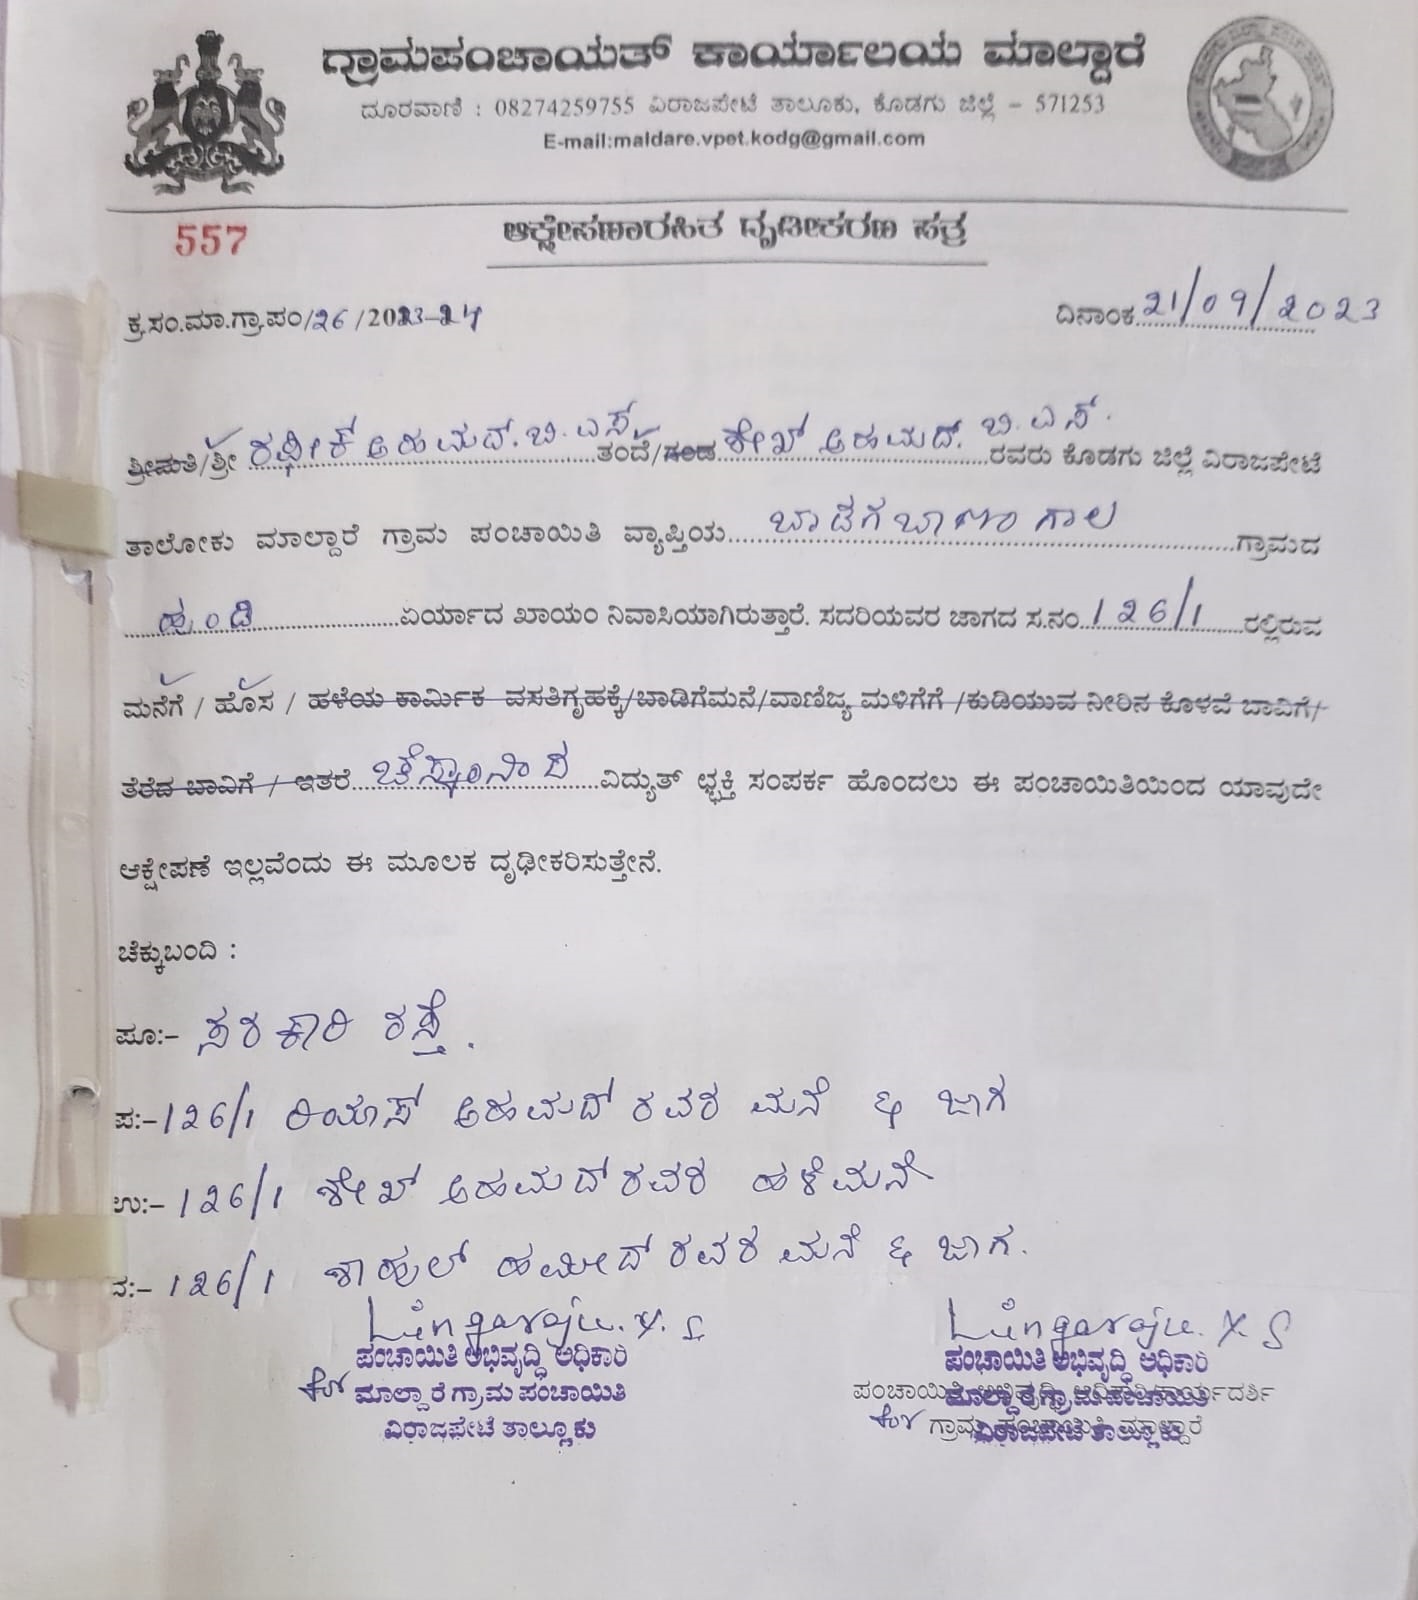 ಗ್ರಾಮಪಂಚಾಯತ್ ಕಾರ್ಯಾಲಯ ಮಾಲ್ದಾರೆ
ದೂರವಾಣಿ : 08274259755 ವಿರಾಜಪೇಟೆ ತಾಲೂಕು, ಕೊಡಗು ಜಿಲ್ಲೆ - 571253
E-mail:maldare.vpet.kodg@gmail.com
557
ಆಕ್ಷೇಪಣಾರಹಿತ ದೃಢೀಕರಣ ಪತ್ರ
ಕ್ರ.ಸಂ.ಮಾ.ಗ್ರಾ.ಪಂ/26/2023-24 ದಿನಾಂಕ 21/09/2023
ಶ್ರೀಮತಿ/ಶ್ರೀ ರಫೀಕ್ ಅಹಮದ್.ಬಿ.ಎಸ್. ತಂದೆ/ಗಂಡ ಶೇಖ್ ಅಹಮದ್. ಬಿ.ಎಸ್. ರವರು ಕೊಡಗು ಜಿಲ್ಲೆ ವಿರಾಜಪೇಟೆ
ತಾಲೋಕು ಮಾಲ್ದಾರೆ ಗ್ರಾಮ ಪಂಚಾಯಿತಿ ವ್ಯಾಪ್ತಿಯ ಬಾಡಗಬಾಣಂಗಾಲ ಗ್ರಾಮದ
ಹುಂಡಿ ಏರ್ಯಾದ ಖಾಯಂ ನಿವಾಸಿಯಾಗಿರುತ್ತಾರೆ. ಸದರಿಯವರ ಜಾಗದ ಸ.ನಂ. 126/1 ರಲ್ಲಿರುವ
ಮನೆಗೆ / ಹೊಸ / ಹಳೆಯ ಕಾರ್ಮಿಕ ವಸತಿಗೃಹಕ್ಕೆ/ಬಾಡಿಗೆಮನೆ/ವಾಣಿಜ್ಯ ಮಳಿಗೆಗೆ /ಕುಡಿಯುವ ನೀರಿನ ಕೊಳವೆ ಬಾವಿಗೆ/
ತೆರೆದ ಬಾವಿಗೆ / ಇತರೆ ವಿದ್ಯುತ್ ಛ್ಛಕ್ತಿ ಸಂಪರ್ಕ ಹೊಂದಲು ಈ ಪಂಚಾಯಿತಿಯಿಂದ ಯಾವುದೇ
ಆಕ್ಷೇಪಣೆ ಇಲ್ಲವೆಂದು ಈ ಮೂಲಕ ದೃಢೀಕರಿಸುತ್ತೇನೆ.
ಚೆಕ್ಕುಬಂದಿ :
ಪೂ:- ಸರಕಾರಿ ರಸ್ತೆ.
ಪ:- 126/1 ರಿಯಾಸ್ ಅಹಮದ್ ರವರ ಮನೆ & ಜಾಗ
ಉ:- 126/1 ಶೇಖ್ ಅಹಮದ್ ರವರ ಹಳೆಮನೆ
ದ:- 126/1 ಶಾಹುಲ್ ಹಮೀದ್ ರವರ ಮನೆ & ಜಾಗ.
Lingaraju. Y. S
ಪಂಚಾಯಿತಿ ಅಭಿವೃದ್ಧಿ ಅಧಿಕಾರಿ
for ಮಾಲ್ದಾರೆ ಗ್ರಾಮ ಪಂಚಾಯಿತಿ
ವಿರಾಜಪೇಟೆ ತಾಲ್ಲೂಕು
Lingaraju. Y. S
ಪಂಚಾಯಿತಿ ಅಭಿವೃದ್ಧಿ ಅಧಿಕಾರಿ
ಮಾಲ್ದಾರೆ ಗ್ರಾಮ ಪಂಚಾಯಿತಿ
for
ವಿರಾಜಪೇಟೆ ತಾಲ್ಲೂಕು